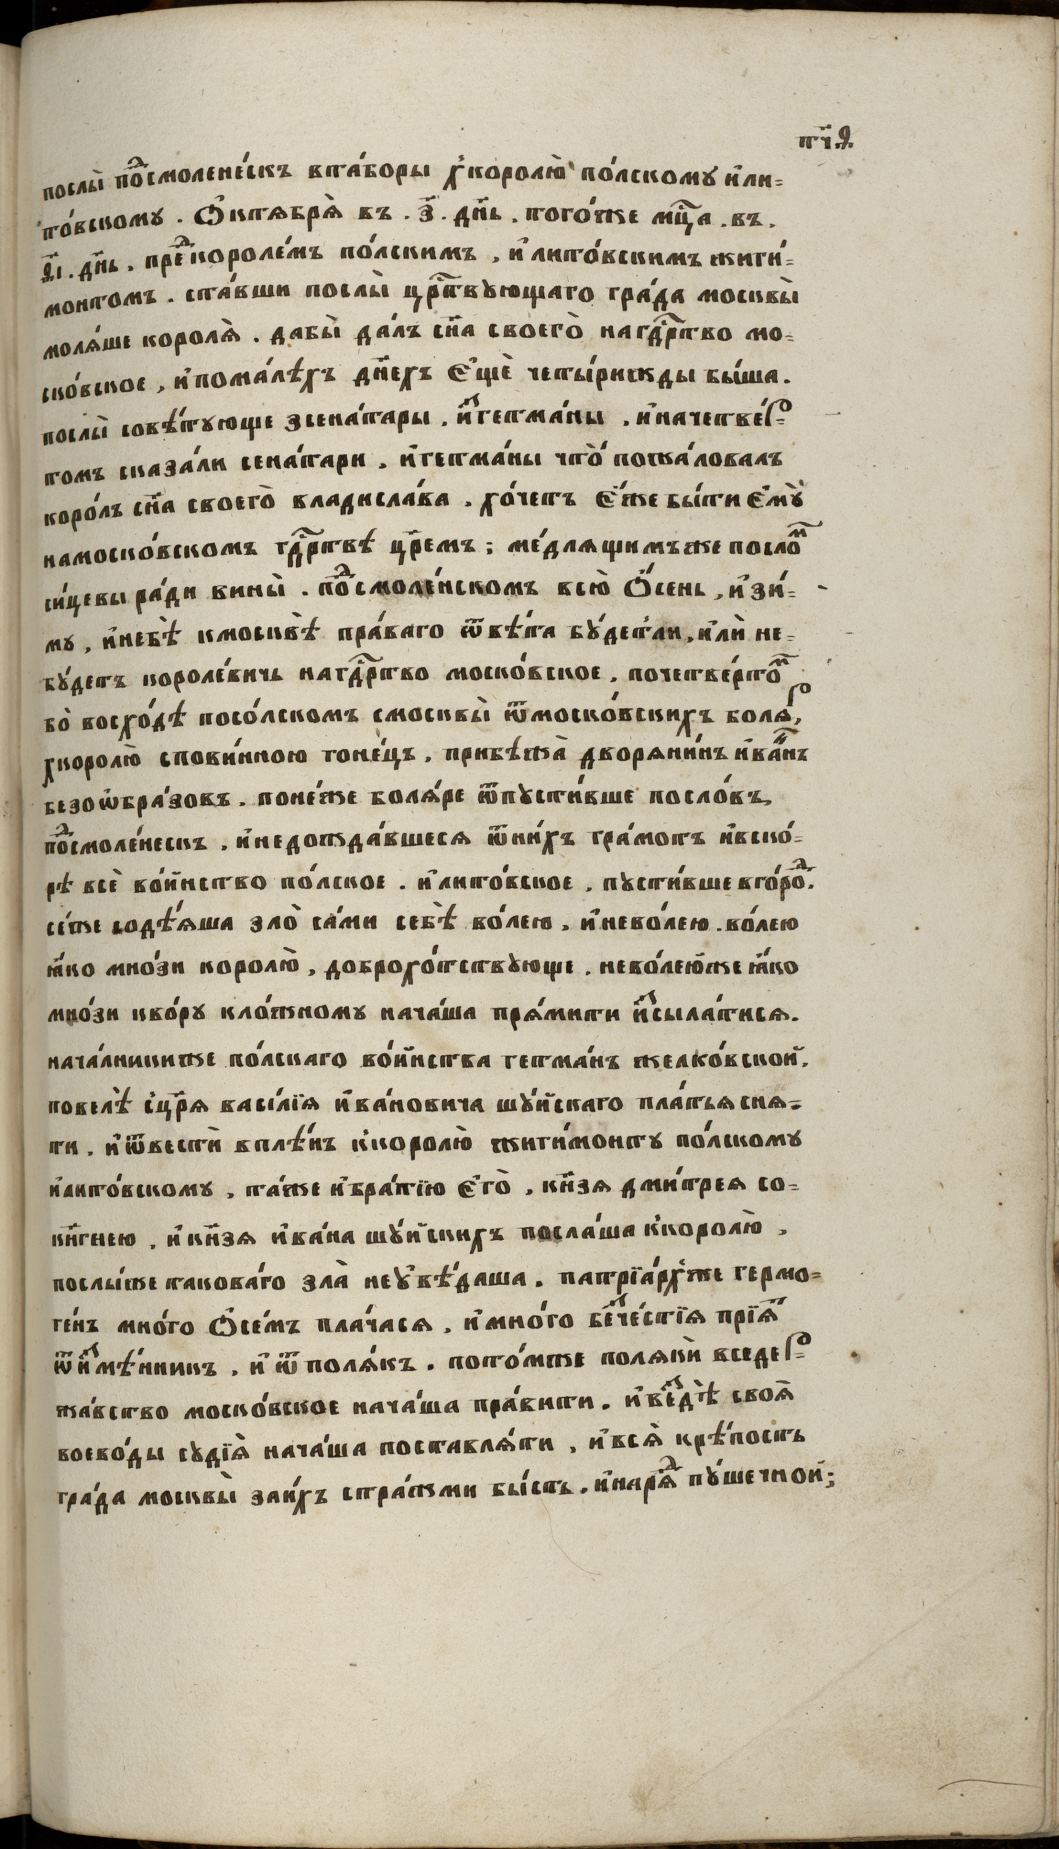 пч҃ѳ
послы̀ по́дсмоле́нескъ вта́боры х̾королю̀ по́лскому и҆ли=
то́вскому . Ѻ҆ктѧбрѧ̀ въ . з҃ . дн҃ь . того́же мц҃а . въ .
ѳ҃і . дн҃ь . пред̾королем̾ъ по́лскимъ , и҆лито́вскимъ жиги=
монтомъ . ста́вши послы̀ цр҃ствующаго гра́да москвы̀
молѧ́ше королѧ̀ . дабы̀ да́лъ сн҃а своего̀ нагдр҃ство мо=
ско́вское , и҆пома́лѣхъ дн҃ехъ Е҆щѐ четы́рижды бы́ша .
послы̀ совѣ́тующе зсена́тары , и҆згетма́ны . и҆начетве́р=
томъ сказа́ли сена́тари , и҆гетма́ны что̀ пожа́ловалъ
коро́ль сн҃а своего̀ владисла́ва . хо́четъ Е҆́же бы́ти Е҆му̀
намоско́вскомъ гдр҃ствѣ цр҃емъ ; ме́длящимъже посло́м
си́цевы ра́ди вины̀ . подсмоле́нскомъ всю̀ Ѻ҆́сень , и҆зи́=
му , и҆небѣ̀ кмосквѣ̀ пра́ваго ѿвѣ́та бу́детли , и҆лѝ не=
бу́детъ короле́вичь нагдр҃ство моско́вское . почетве́ртом
бо̀ восхо́дѣ посо́лскомъ смосквы̀ ѿмоско́вскихъ болѧ́р ,
хкоролю̀ спови́нною гоне́цъ . прибѣжа̀ дворяни́нъ и҆ва́нъ
безоѡбра́зовъ . поне́же болѧ́ре ѿпусти́вше посло́въ ,
подсмоле́нескъ , и҆недожда́вшеся ѿни́хъ гра́мотъ и҆вско́=
рѣ всѐ во́инство по́лское . и҆лито́вское , пусти́вше вго́род .
се́же содѣ́яша зло̀ са́ми себѣ̀ во́лею , и҆нево́лею . во́лею
ꙗ҆́ко мно́зи королю̀ , доброхо́тствующе . нево́леюже ꙗ҆́ко
мно́зи кво́ру кло́жному нача́ша пря́мити и҆ссыла́тися .
нача́лникиже по́лскаго во́инства гетма́нъ желко́вской .
повелѣ̀ с̾цр҃я васи́лїя и҆ва́новича шу́йскаго пла́тья сня=
ти . и҆ѿвестѝ вплѣ́нъ к̾королю̀ жиги́монту по́лскому
и҆лито́вскому , та́же и҆бра́тїю Е҆го̀ , кн҃зя дми́трея со=
кн҃гнею , и҆кн҃зя и҆ва́на шу́йскихъ посла́ша к̾королю̀ ,
послы́же такова́го зла̀ неу҆вѣ́даша . патрїа́рхъже гермо=
ге́нъ мно́го Ѻ҆се́мъ пла́чася , и҆мно́го безче́стїя прїя́т
ѿи҆змѣ́нникъ , и҆ѿполя́къ . пото́мже полякѝ вседер=
жа́вство моско́вское нача́ша пра́вити . и҆вездѣ̀ своѧ̀
воево́ды судїѧ̀ нача́ша поставля́ти , и҆всѧ̀ крѣ́пость
гра́да москвы̀ заи́хъ стра́жми бы́сть . и҆наря́д пу́шечной ;